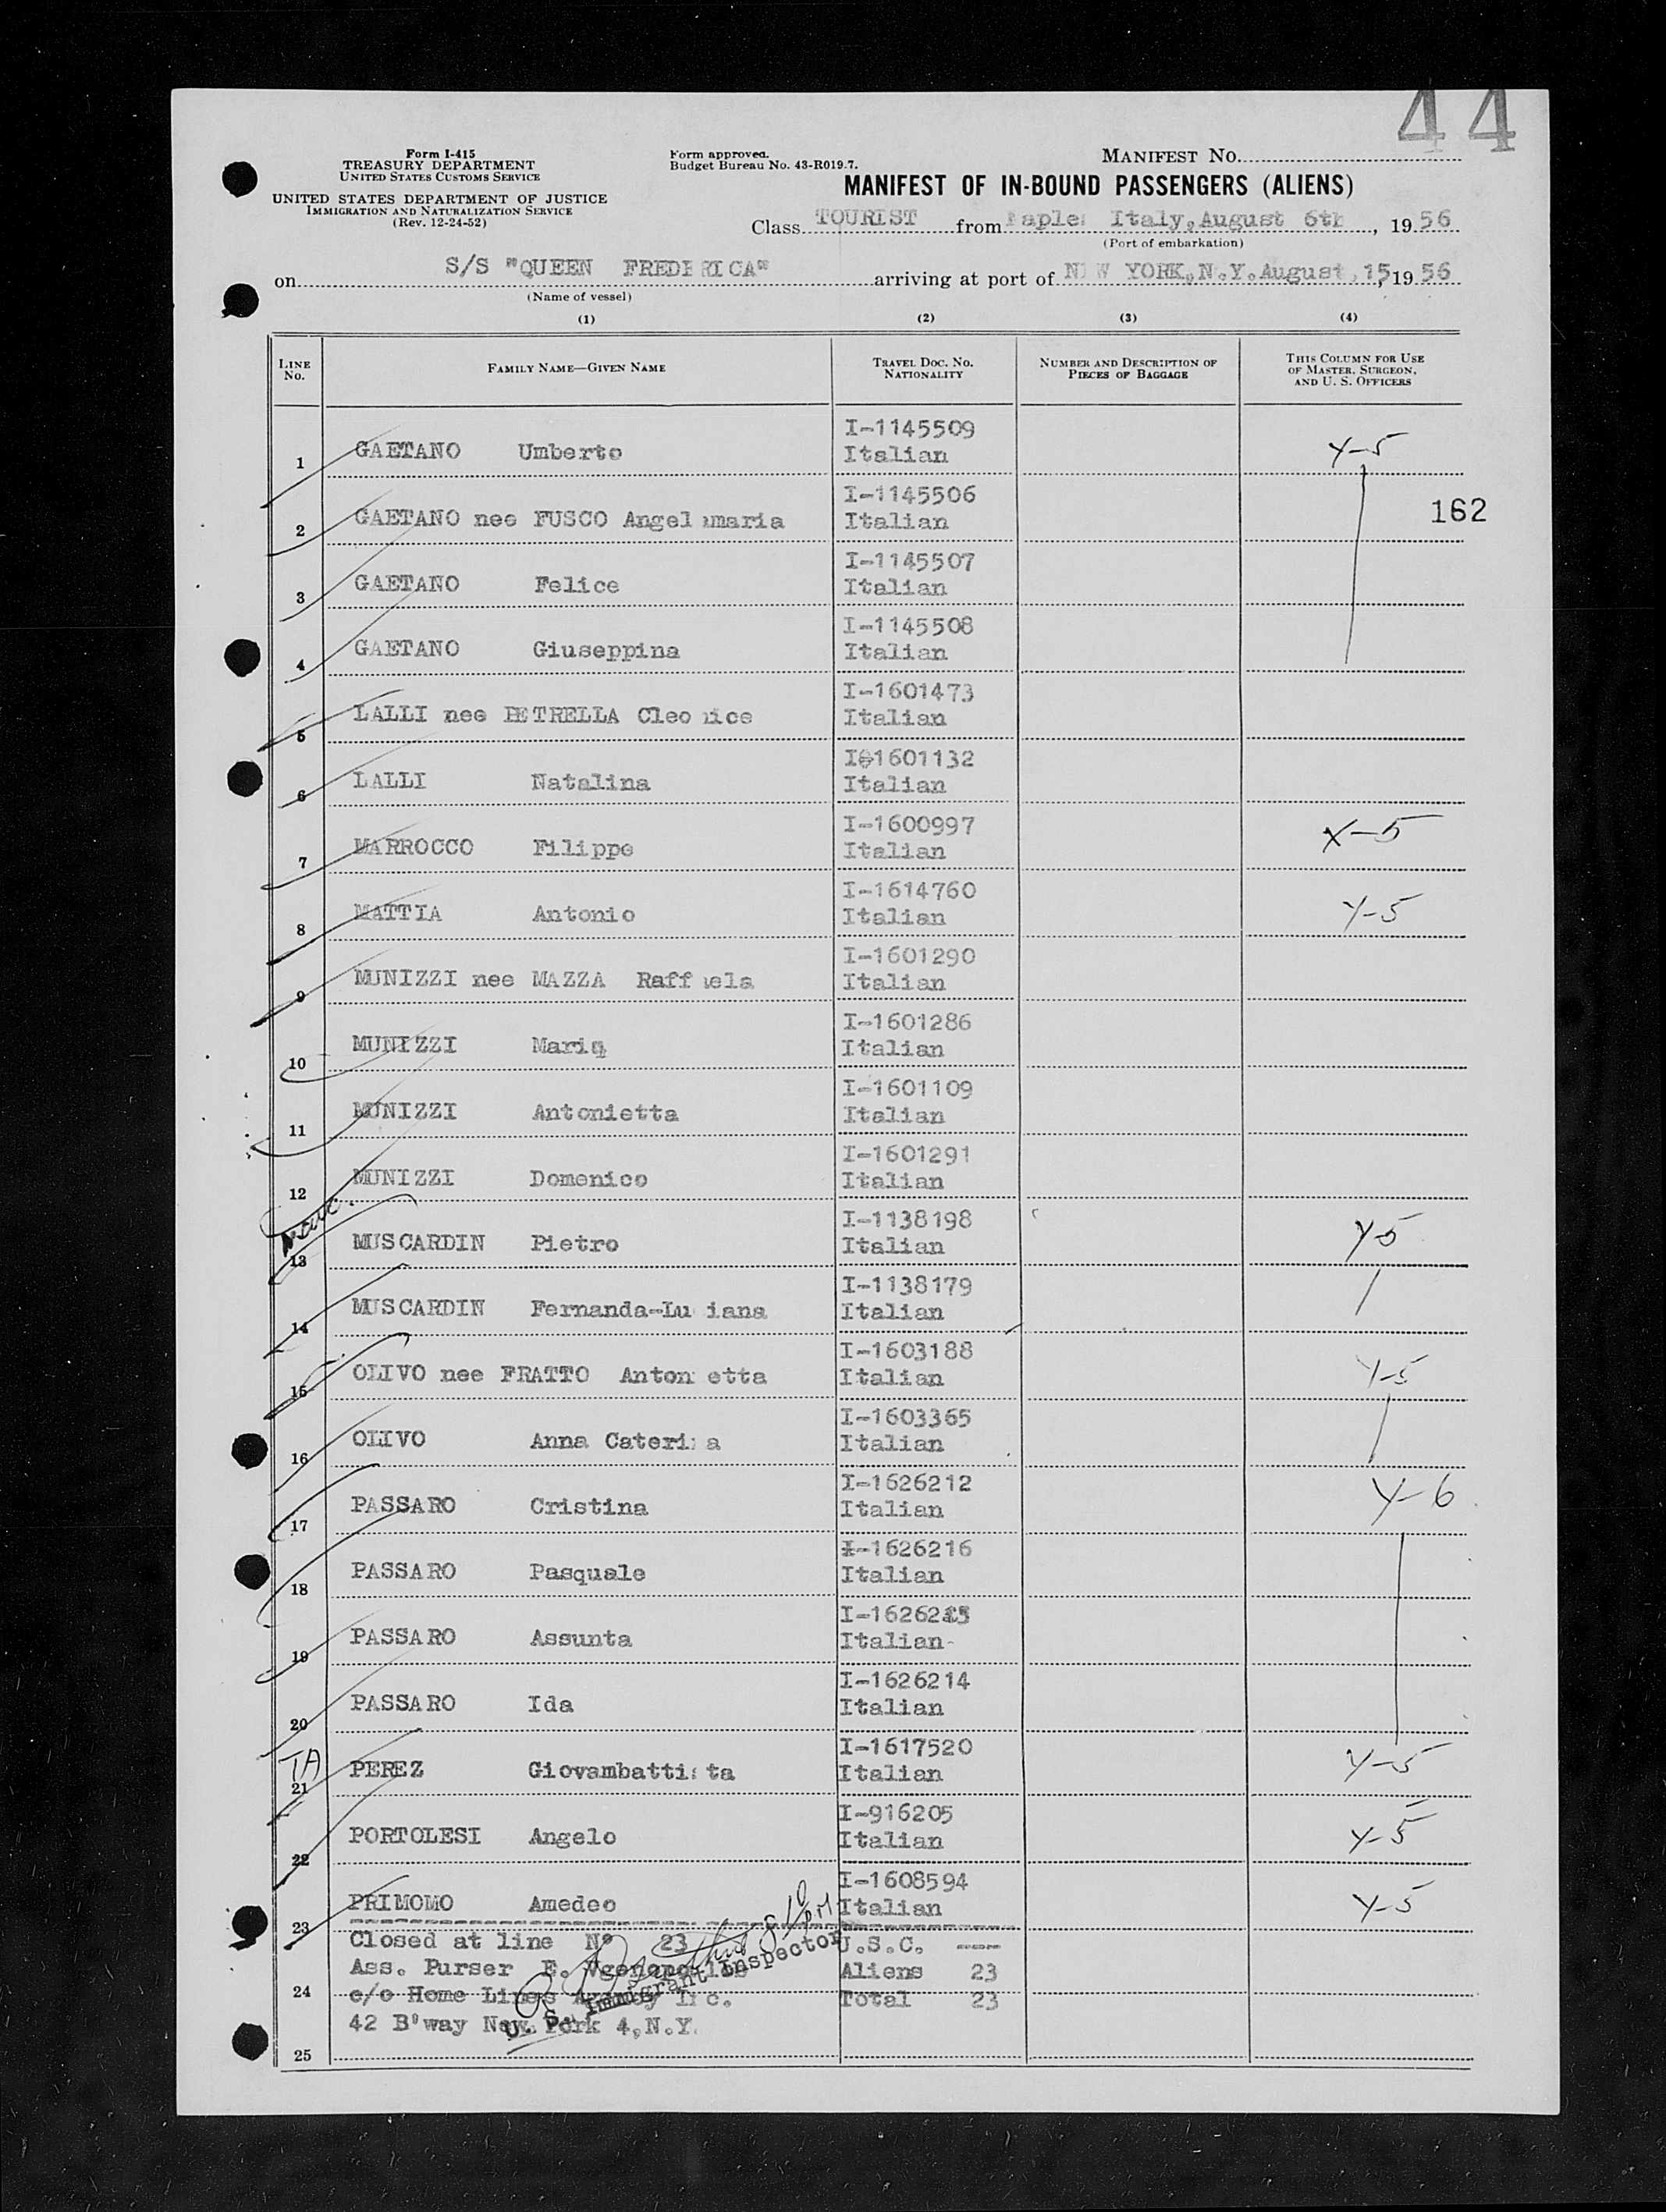 44
Form I-415
TREASURY DEPARTMENT
UNITED STATES CUSTOMS SERVICE
UNITED STATES DEPARTMENT OF JUSTICE
IMMIGRATION AND NATURALIZATION SERVICE
(Rev. 12-24-52)
Form approved.
Budget Bureau No. 43-R019.7.
MANIFEST No.
MANIFEST OF IN-BOUND PASSENGERS (ALIENS)
Class TOURIST from Naples Italy, August 6th, 1956
(Port of embarkation)
on S/S "QUEEN FREDERICA" arriving at port of NEW YORK, N.Y. August, 15, 1956
(Name of vessel)
(1) (2) (3) (4)
LINE No. FAMILY NAME—GIVEN NAME TRAVEL DOC. NO. NATIONALITY NUMBER AND DESCRIPTION OF PIECES OF BAGGAGE THIS COLUMN FOR USE OF MASTER, SURGEON, AND U. S. OFFICERS
1 GAETANO Umberto I-1145509 Italian Y-5
162
2 GAETANO nee FUSCO Angelamaria I-1145506 Italian
3 GAETANO Felice I-1145507 Italian
4 GAETANO Giuseppina I-1145508 Italian
5 LALLI nee PETRELLA Cleonice I-1601473 Italian
6 LALLI Natalina I-1601132 Italian
7 MARROCCO Filippo I-1600997 Italian X-5
8 MATTIA Antonio I-1614760 Italian Y-5
9 MUNIZZI nee MAZZA Raffaela I-1601290 Italian
10 MUNIZZI Maria I-1601286 Italian
11 MUNIZZI Antonietta I-1601109 Italian
12 MUNIZZI Domenico I-1601291 Italian
13 MUSCARDIN Pietro I-1138198 Italian Y5
14 MUSCARDIN Fernanda-Luciana I-1138179 Italian
15 OLIVO nee FRATTO Antonietta I-1603188 Italian Y-5
16 OLIVO Anna Caterina I-1603365 Italian
17 PASSARO Cristina I-1626212 Italian Y-6
18 PASSARO Pasquale I-1626216 Italian
19 PASSARO Assunta I-1626215 Italian
20 PASSARO Ida I-1626214 Italian
TA
21 PEREZ Giovambattista I-1617520 Italian Y-5
22 PORTOLESI Angelo I-916205 Italian Y-5
23 PRIMOMO Amedeo I-1608594 Italian Y-5
Closed at line No 23 U.S.C. ----
Ass. Purser E. Aliens 23
24 c/o Home Lines Agency Inc. Total 23
42 B'way New York 4, N.Y.
U. S. Immigrant Inspector
25